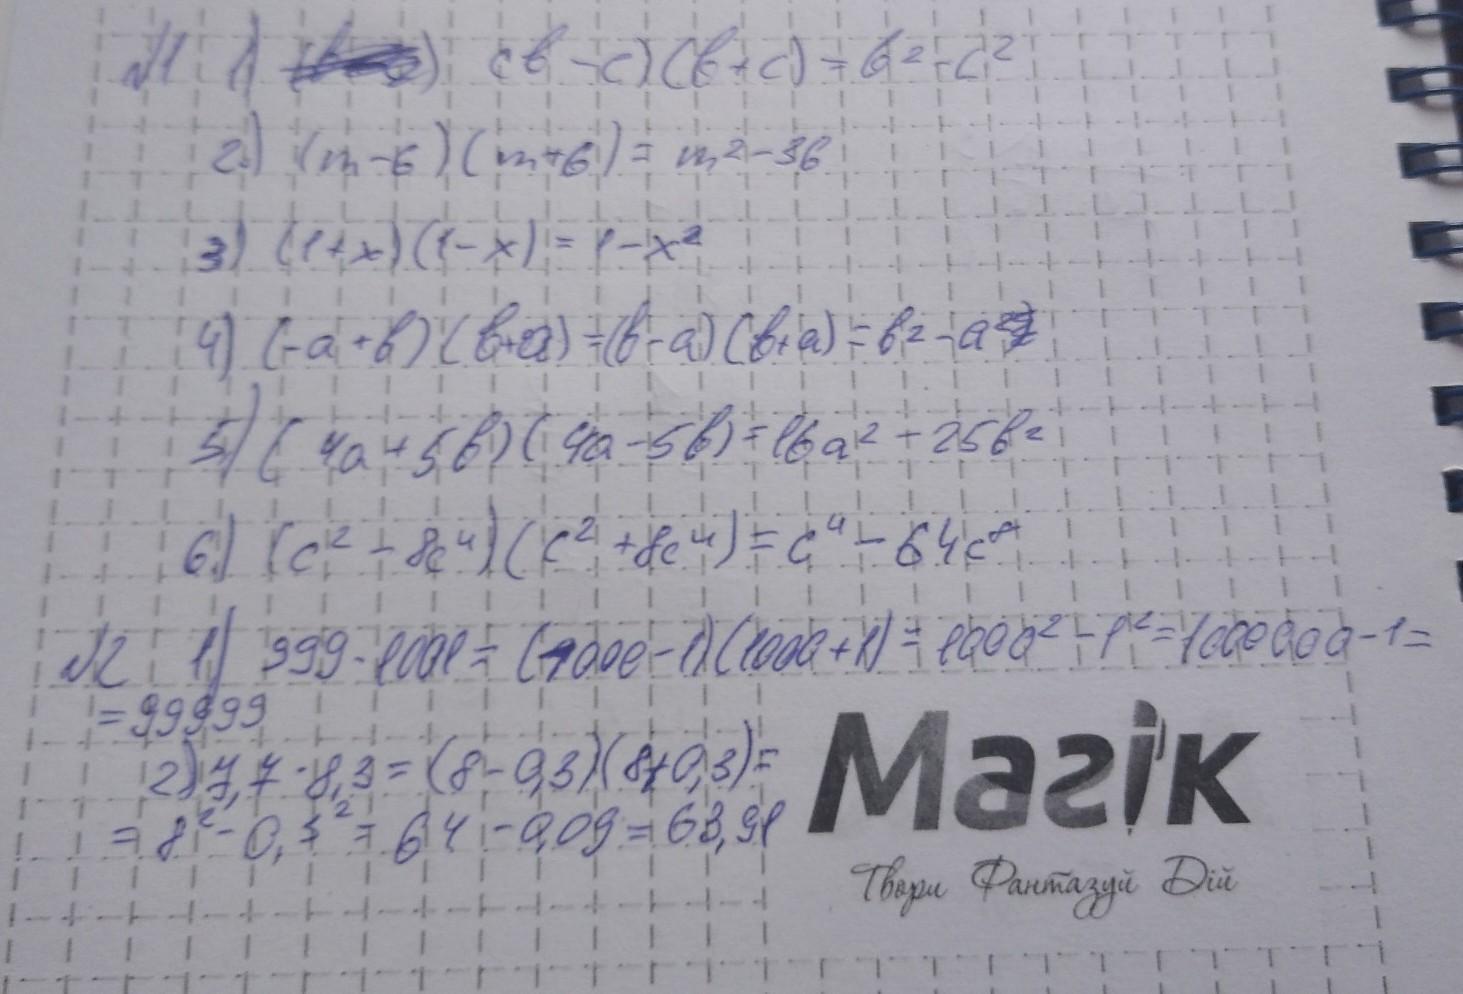 №1 1) (в-с)(в+с)=в²-с²
2) (m-6)(m+6)=m²-36
3) (1+x)(1-x)=1-x²
4) (-а+в)(в+а)=(в-а)(в+а)=в²-а²
5) (4а+5в)(4а-5в)=16а²-25в²
6) (с²-8с⁴)(с²+8с⁴)=с⁴-64с⁸
№2 1) 999·1001=(1000-1)(1000+1)=1000²-1²=1000000-1=
=99999
2) 7,7·8,3=(8-0,3)(8+0,3)=
=8²-0,3²=64-0,09=63,91
Магік
Твори Фантазуй Дій